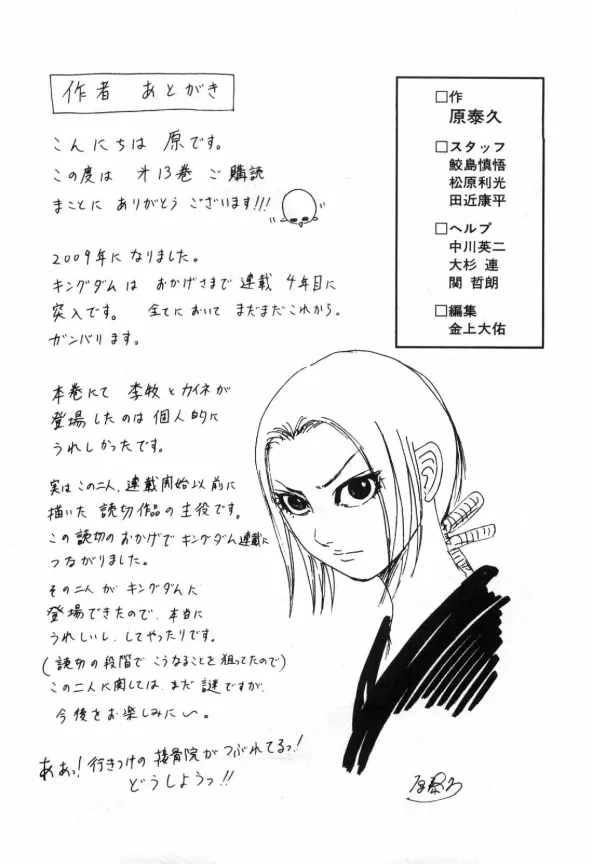 作者 あとがき
こんにちは 原です。
この度は オ13巻 ご購読
まことに ありがとう ございます!!!
2009年に なりました。
キングダム は おかげさまで 連載 4年目に
突入です。 全てにおいて まだまだこれから。
ガンバリます。
本巻にて 李牧とカイネが
登場したのは個人的に
うれしかったです。
実はこの二人、連載開始以前に
描いた 読切作品の主役です。
この読切のおかげで キングダム連載に
つながりました。
その二人が キングダムに
登場できたので、本当に
うれしいし、してやったりです。
(読切の段階で こうなることを 狙ってたので)
この二人に関しては、まだ 謎ですが、
今後をお楽しみに〜。
ああっ! 行きつけの 接骨院が つぶれてるっ!
どうしようっ!!
□作
原泰久
□スタッフ
鮫島慎悟
松原利光
田近康平
□ヘルプ
中川英二
大杉 連
関 哲朗
□編集
金上大佑
原泰久